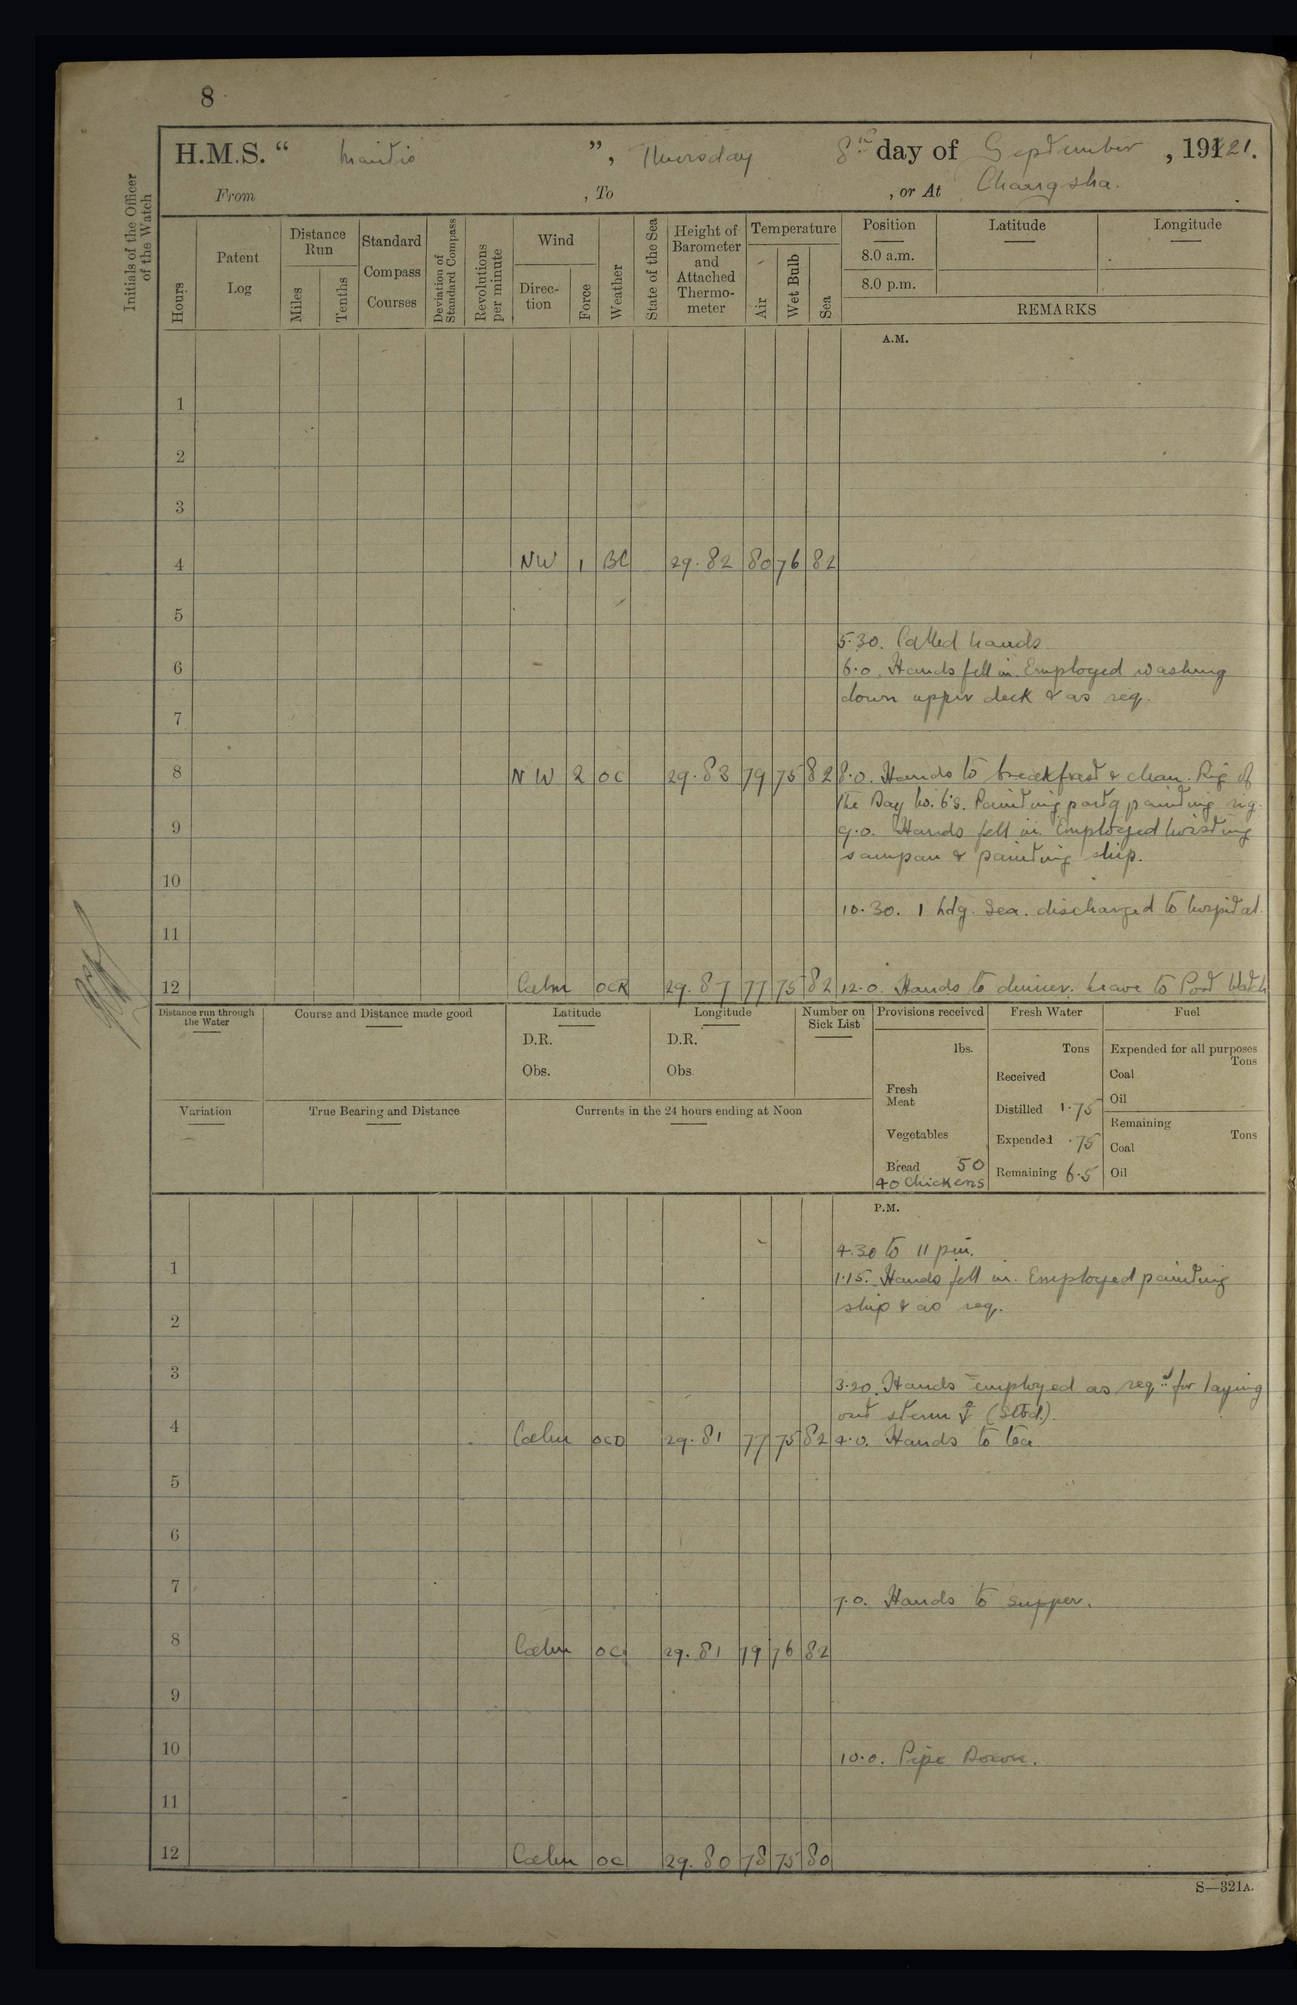 8
H.M.S. “ Mantis ”, Thursday 8th day of September, 1921.
From , To , or At Changsha.
Initials of the Officer of the Watch
Hours
Patent Log
Distance Run
Miles
Tenths
Standard Compass Courses
Deviation of Standard Compass
Revolutions per minute
Wind
Direction
Force
Weather
State of the Sea
Height of Barometer and Attached Thermometer
Temperature
Air
Wet Bulb
Sea
Position
Latitude
Longitude
8.0 a.m.
8.0 p.m.
REMARKS
A.M.
1
2
3
4 NW 1 BC 29.82 80 76 82
5
5.30. Called hands
6 6.0. Hands fell in. Employed washing
down upper deck & as req.
7
8 NW 2 OC 29.83 79 75 82 8.0. Hands to breakfast & clean. Rig of
the Day No. 6's. Painting party painting rig.
9 9.0. Hands fell in. Employed hoisting
sampan & painting ship.
10
10.30. 1 Ldg. Sea. discharged to hospital.
11
12 Calm OCR 29.87 77 75 82 12.0. Hands to dinner. Leave to Port Watch
Distance run through the Water
Course and Distance made good
Latitude
D.R.
Obs.
Longitude
D.R.
Obs
Number on Sick List
Provisions received
lbs.
Fresh Meat
Vegetables
Bread 50
40 Chickens
Fresh Water
Tons
Received
Distilled 1.75
Expended .75
Remaining 6.5
Fuel
Expended for all purposes
Tons
Coal
Oil
Remaining
Tons
Coal
Oil
Variation
True Bearing and Distance
Currents in the 24 hours ending at Noon
P.M.
4.30 to 11 pm.
1 1.15. Hands fell in. Employed painting
ship & as req.
2
3 3.20. Hands employed as reqd for laying
out stern ⚓ (Stbd.).
4 Calm OCD 29.81 77 75 82 4.0. Hands to tea
5
6
7 7.0. Hands to supper.
8 Calm OC 29.81 79 76 82
9
10 10.0. Pipe Down.
11
12 Calm OC 29.80 78 75 80
S—321A.